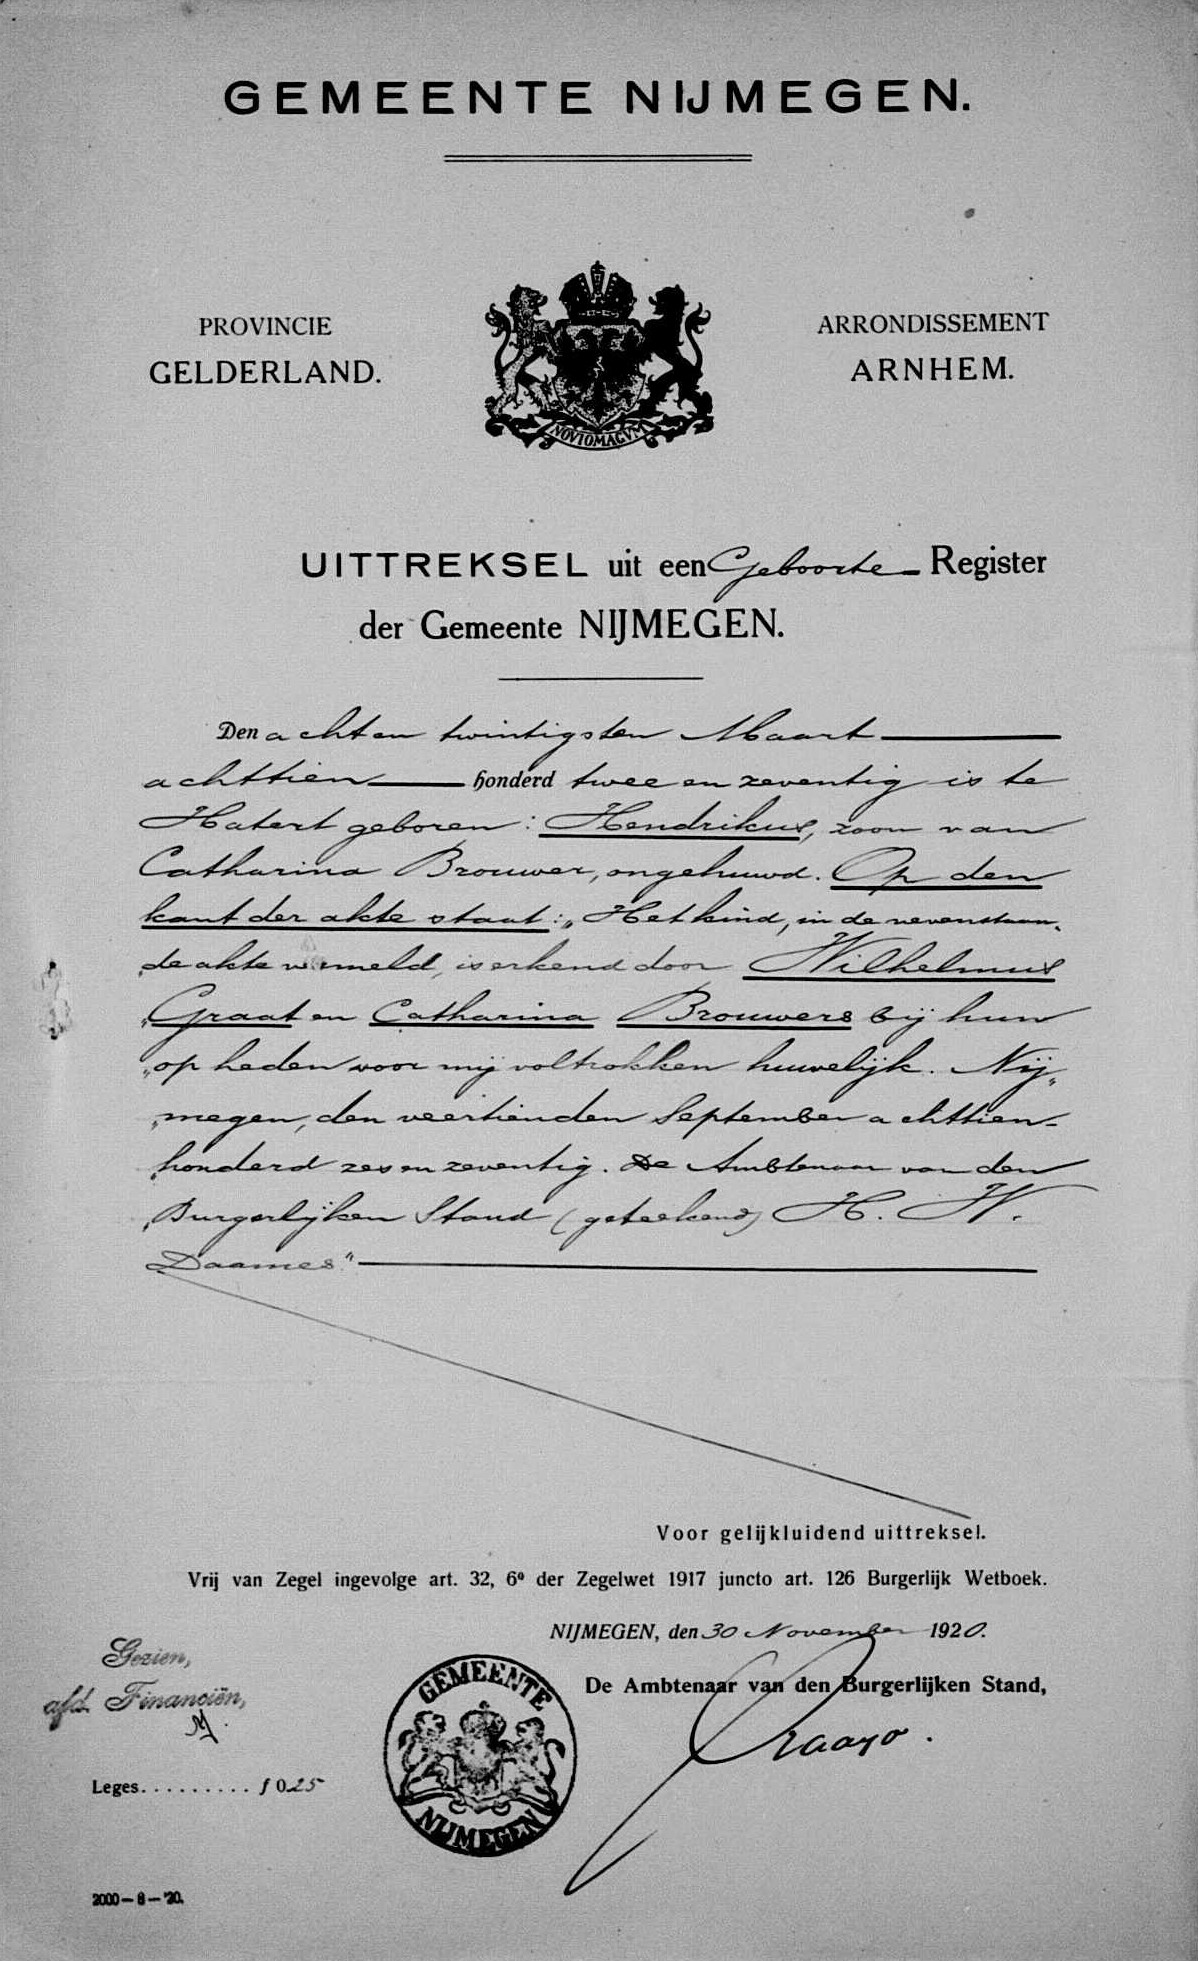 GEMEENTE NIJMEGEN.
PROVINCIE
GELDERLAND.
NOVIOMAGVM
ARRONDISSEMENT
ARNHEM.
UITTREKSEL uit een Geboorte Register
der Gemeente NIJMEGEN.
Den achten twintigsten Maart
achttien honderd twee en zeventig is te
Hatert geboren: Hendrikus, zoon van
Catharina Brouwer, ongehuwd. Op den
kant der akte staat: „Het kind, in de nevenstaan„
„de akte vermeld, is erkend door Wilhelmus
„Graat en Catharina Brouwers bij hun
„op heden voor mij voltrokken huwelijk. Nij„
„megen, den veertienden September achttien-
„honderd zes en zeventig. De Ambtenaar van den
„Burgerlijken Stand (geteekend) H. W.
Daames"
Voor gelijkluidend uittreksel.
Vrij van Zegel ingevolge art. 32, 6º der Zegelwet 1917 juncto art. 126 Burgerlijk Wetboek.
NIJMEGEN, den 30 November 1920.
De Ambtenaar van den Burgerlijken Stand,
Gezien,
afd. Financiën,
GEMEENTE
NIJMEGEN
Leges.......... f 0.25
2000—8—'20.